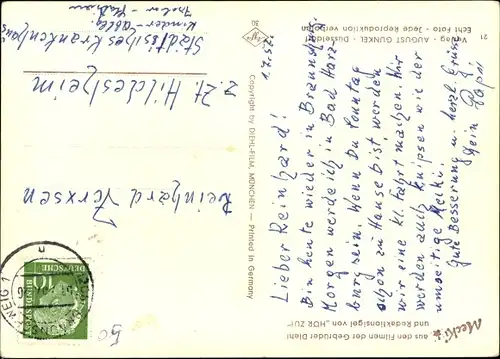 Mecki
aus den Filmen der Gebrüder Diehl
und Redaktionsigel von „HÖR ZU!"
1.7.57.
Lieber Reinhard!
Bin heute wieder in Braunschweig.
Morgen werde ich in Bad Harz-
burg sein. Wenn Du Sonntag
schon zu Hause bist werden
wir eine kl. Fahrt machen. Wir
werden auch knipsen wie der
umseitige Mecki.
Gute Besserung u. herzl. Grüsse
Dein Papi
Copyright by DIEHL-FILM, MÜNCHEN — Printed in Germany
21 Verlag - AUGUST GUNKEL - Düsseldorf
Echt Foto - Jede Reproduktion verboten
30
Reinhard
z. Zt. Hildesheim
Städtisches Krankenhaus
Kinder-Abtlg.
BRAUNSCHWEIG 1
10
DEUTSCHE
BUNDESPOST
50